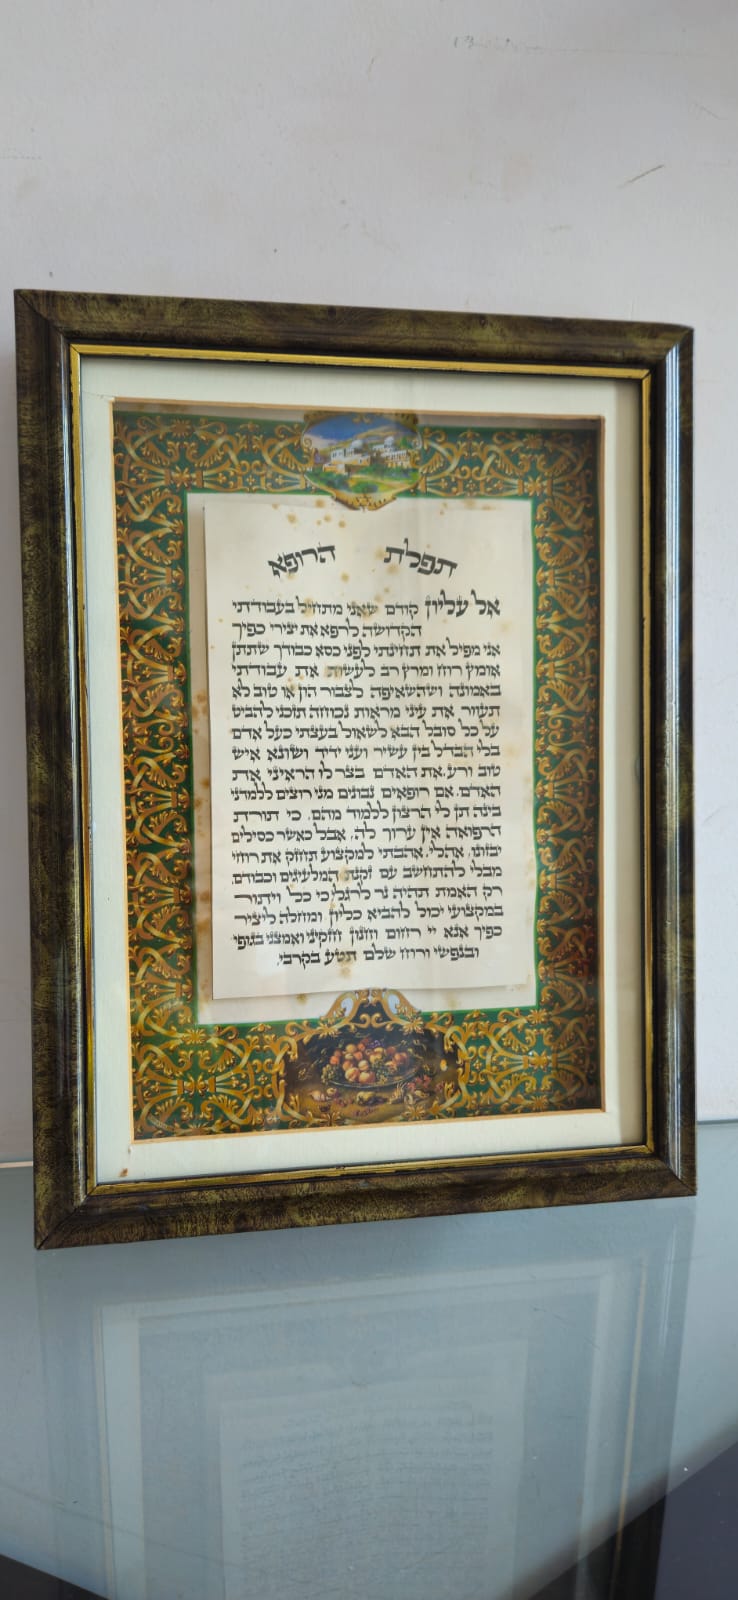 תפלת הרופא
אל עליון קודם שאני מתחיל בעבודתי
הקדושה לרפא את יצירי כפיך
אני מפיל את תחינתי לפני כסא כבודך שתתן
אומץ רוח ומרץ רב לעשות את עבודתי
באמונה ושהשאיפה לצבור הון או טוב לא
תעוור את עיני מראות נכוחה תוכני להביט
על כל סובל הבא לשאול בעצתי כעל אדם
בלי הבדל בין עשיר ועני ידיד ושונא איש
טוב ורע, את האדם בצר לו הראיני את
האדם. אם רופאים נבונים מני רוצים ללמדני
בינה תן לי הרצון ללמוד מהם, כי תורת
הרפואה אין ערוך לה, אבל כאשר כסילים
יבוזוני, אהלי, אהבתי למקצוע תחזק את רוחי
מבלי להתחשב עם זקנת המלעיגים וכבודם,
רק האמת תהיה נר לרגלי כי כל ויתור
במקצועי יכול להביא כליון ומחלה ליציר
כפיך אנא יי רחום וחנון חזקיני ואמצני בגופי
ובנפשי ורוח שלם תטע בקרבי.